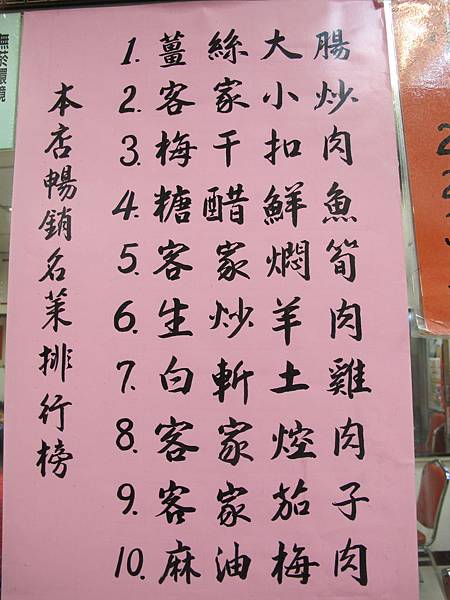 本店暢銷名菜排行榜
1. 薑絲大腸
2. 客家小炒
3. 梅干扣肉
4. 糖醋鮮魚
5. 客家燜筍
6. 生炒羊肉
7. 白斬土雞
8. 客家焢肉
9. 客家茄子
10. 麻油梅肉
無菸環境